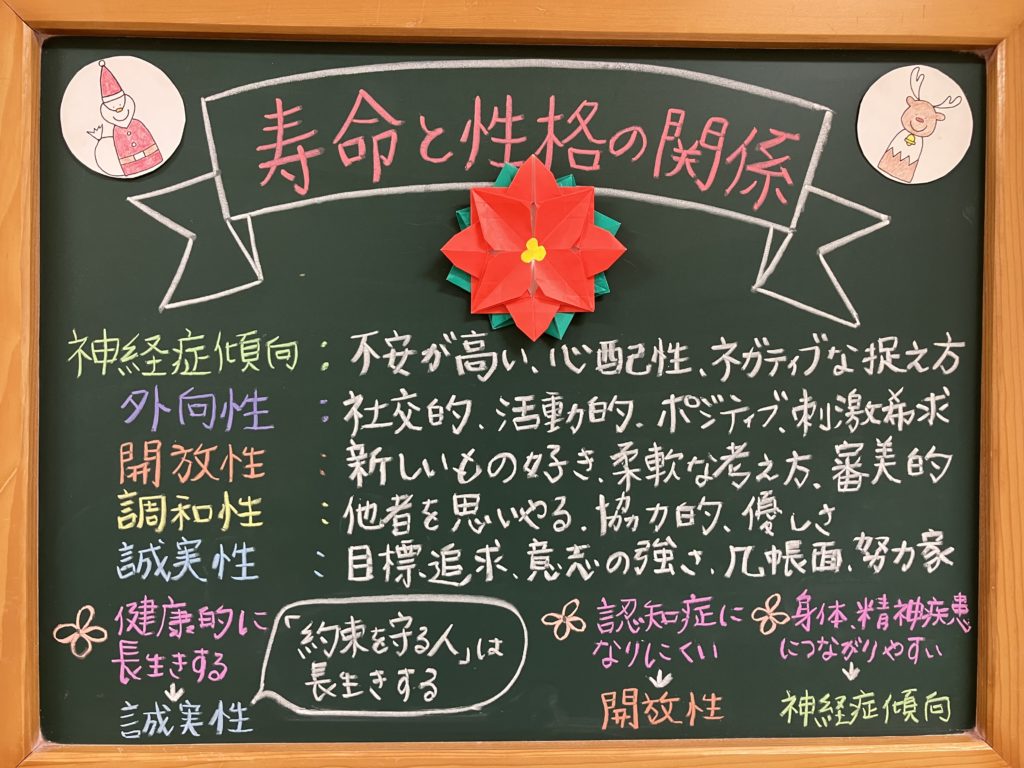 寿命と性格の関係
神経症傾向：不安が高い、心配性、ネガティブな捉え方
外向性：社交的、活動的、ポジティブ、刺激希求
開放性：新しいもの好き、柔軟な考え方、審美的
調和性：他者を思いやる、協力的、優しさ
誠実性：目標追求、意志の強さ、几帳面、努力家
健康的に
長生きする
↓
誠実性
「約束を守る人」は
長生きする
認知症に
なりにくい
↓
開放性
身体、精神疾患
につながりやすい
↓
神経症傾向